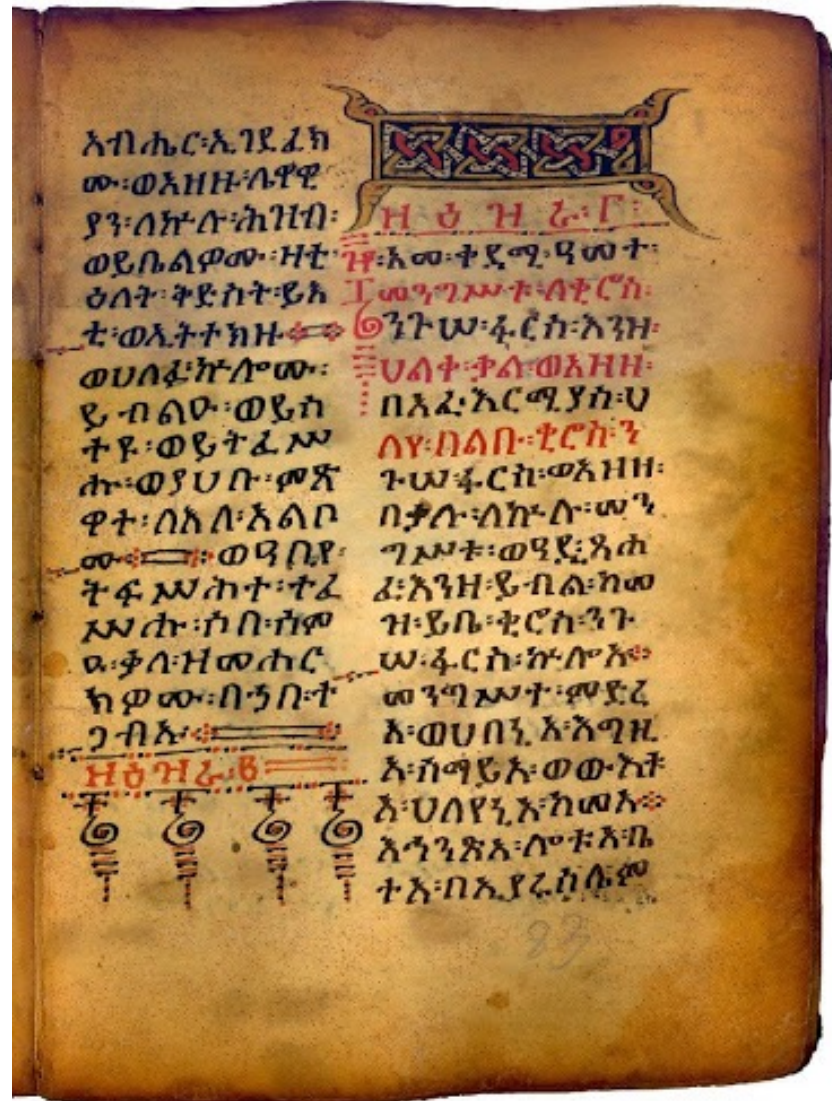 አብሔር፡ኢገደፈክ
ሙ፡ወአዘዙ፡ሌዋዊ
ያን፡ለኵሉ፡ሕዝብ፡
ወይቤልዎሙ፡ዛቲ፡
ዕለት፡ቅድስት፡ይእ
ቲ፡ወኢትተክዙ
ወሀለፉ፡ኵሎሙ፡
ይብልዑ፡ወይስ
ተዩ፡ወይትፈሥ
ሑ፡ወያሀቡ፡ምጽ
ዋተ፡ለእለ፡አልቦ
ሙ፡ወዓቢየ፡
ትፍሥሕተ፡ተፈ
ሥሑ፡ሶበ፡ሰም
ዑ፡ቃለ፡ዝመሐር
ክዎሙ፡በኃበ፡ተ
ጋብኡ
ዘዕዝራ፡፪
ዘዕዝራ፡፫፡
አመ፡ቀዳሚ፡ዓመተ፡
መንግሥቱ፡ለቂሮስ፡
ንጉሠ፡ፋርስ፡እንዘ፡
ሀልቀ፡ቃለ፡ወአዘዘ፡
በአፈ፡ኤርሚያስ፡ሀ
ለየ፡በልቡ፡ቂሮስ፡ን
ጉሠ፡ፋርስ፡ወአዘዘ፡
በቃሉ፡ለኵሉ፡መን
ግሥቱ፡ወዓዲ፡ጸሐ
ፈ፡እንዘ፡ይብል፡ከመ
ዝ፡ይቤ፡ቂሮስ፡ንጉ
ሠ፡ፋርስ፡ኵሎአ
መንግሥተ፡ምድረ
አ፡ወሀበኒ፡አ፡እግዚ
አ፡ሰማይአ፡ወውእቱ
አ፡ሀለየኒአ፡ከመአ
እኅንጽአ፡ሎቱአ፡ቤ
ተአ፡በኢያሩሳሌም
83